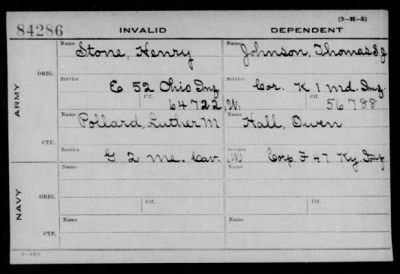 (3-H-5)
84286 INVALID DEPENDENT
ARMY
ORIG.
Name Stone, Henry Name Johnson, Thomas J
Service E 52 Ohio Inf Service Cor. K 1 Md. Inf.
Ctf. 64722 W. Ctf. 56788
CTF.
Name Pollard, Luther M Name Hall, Owen
Service G 2 Me. Cav. W Service Corp F 47 Ky. Inf
NAVY
ORIG.
Name Ctf. Name Ctf.
CTF.
Name Name